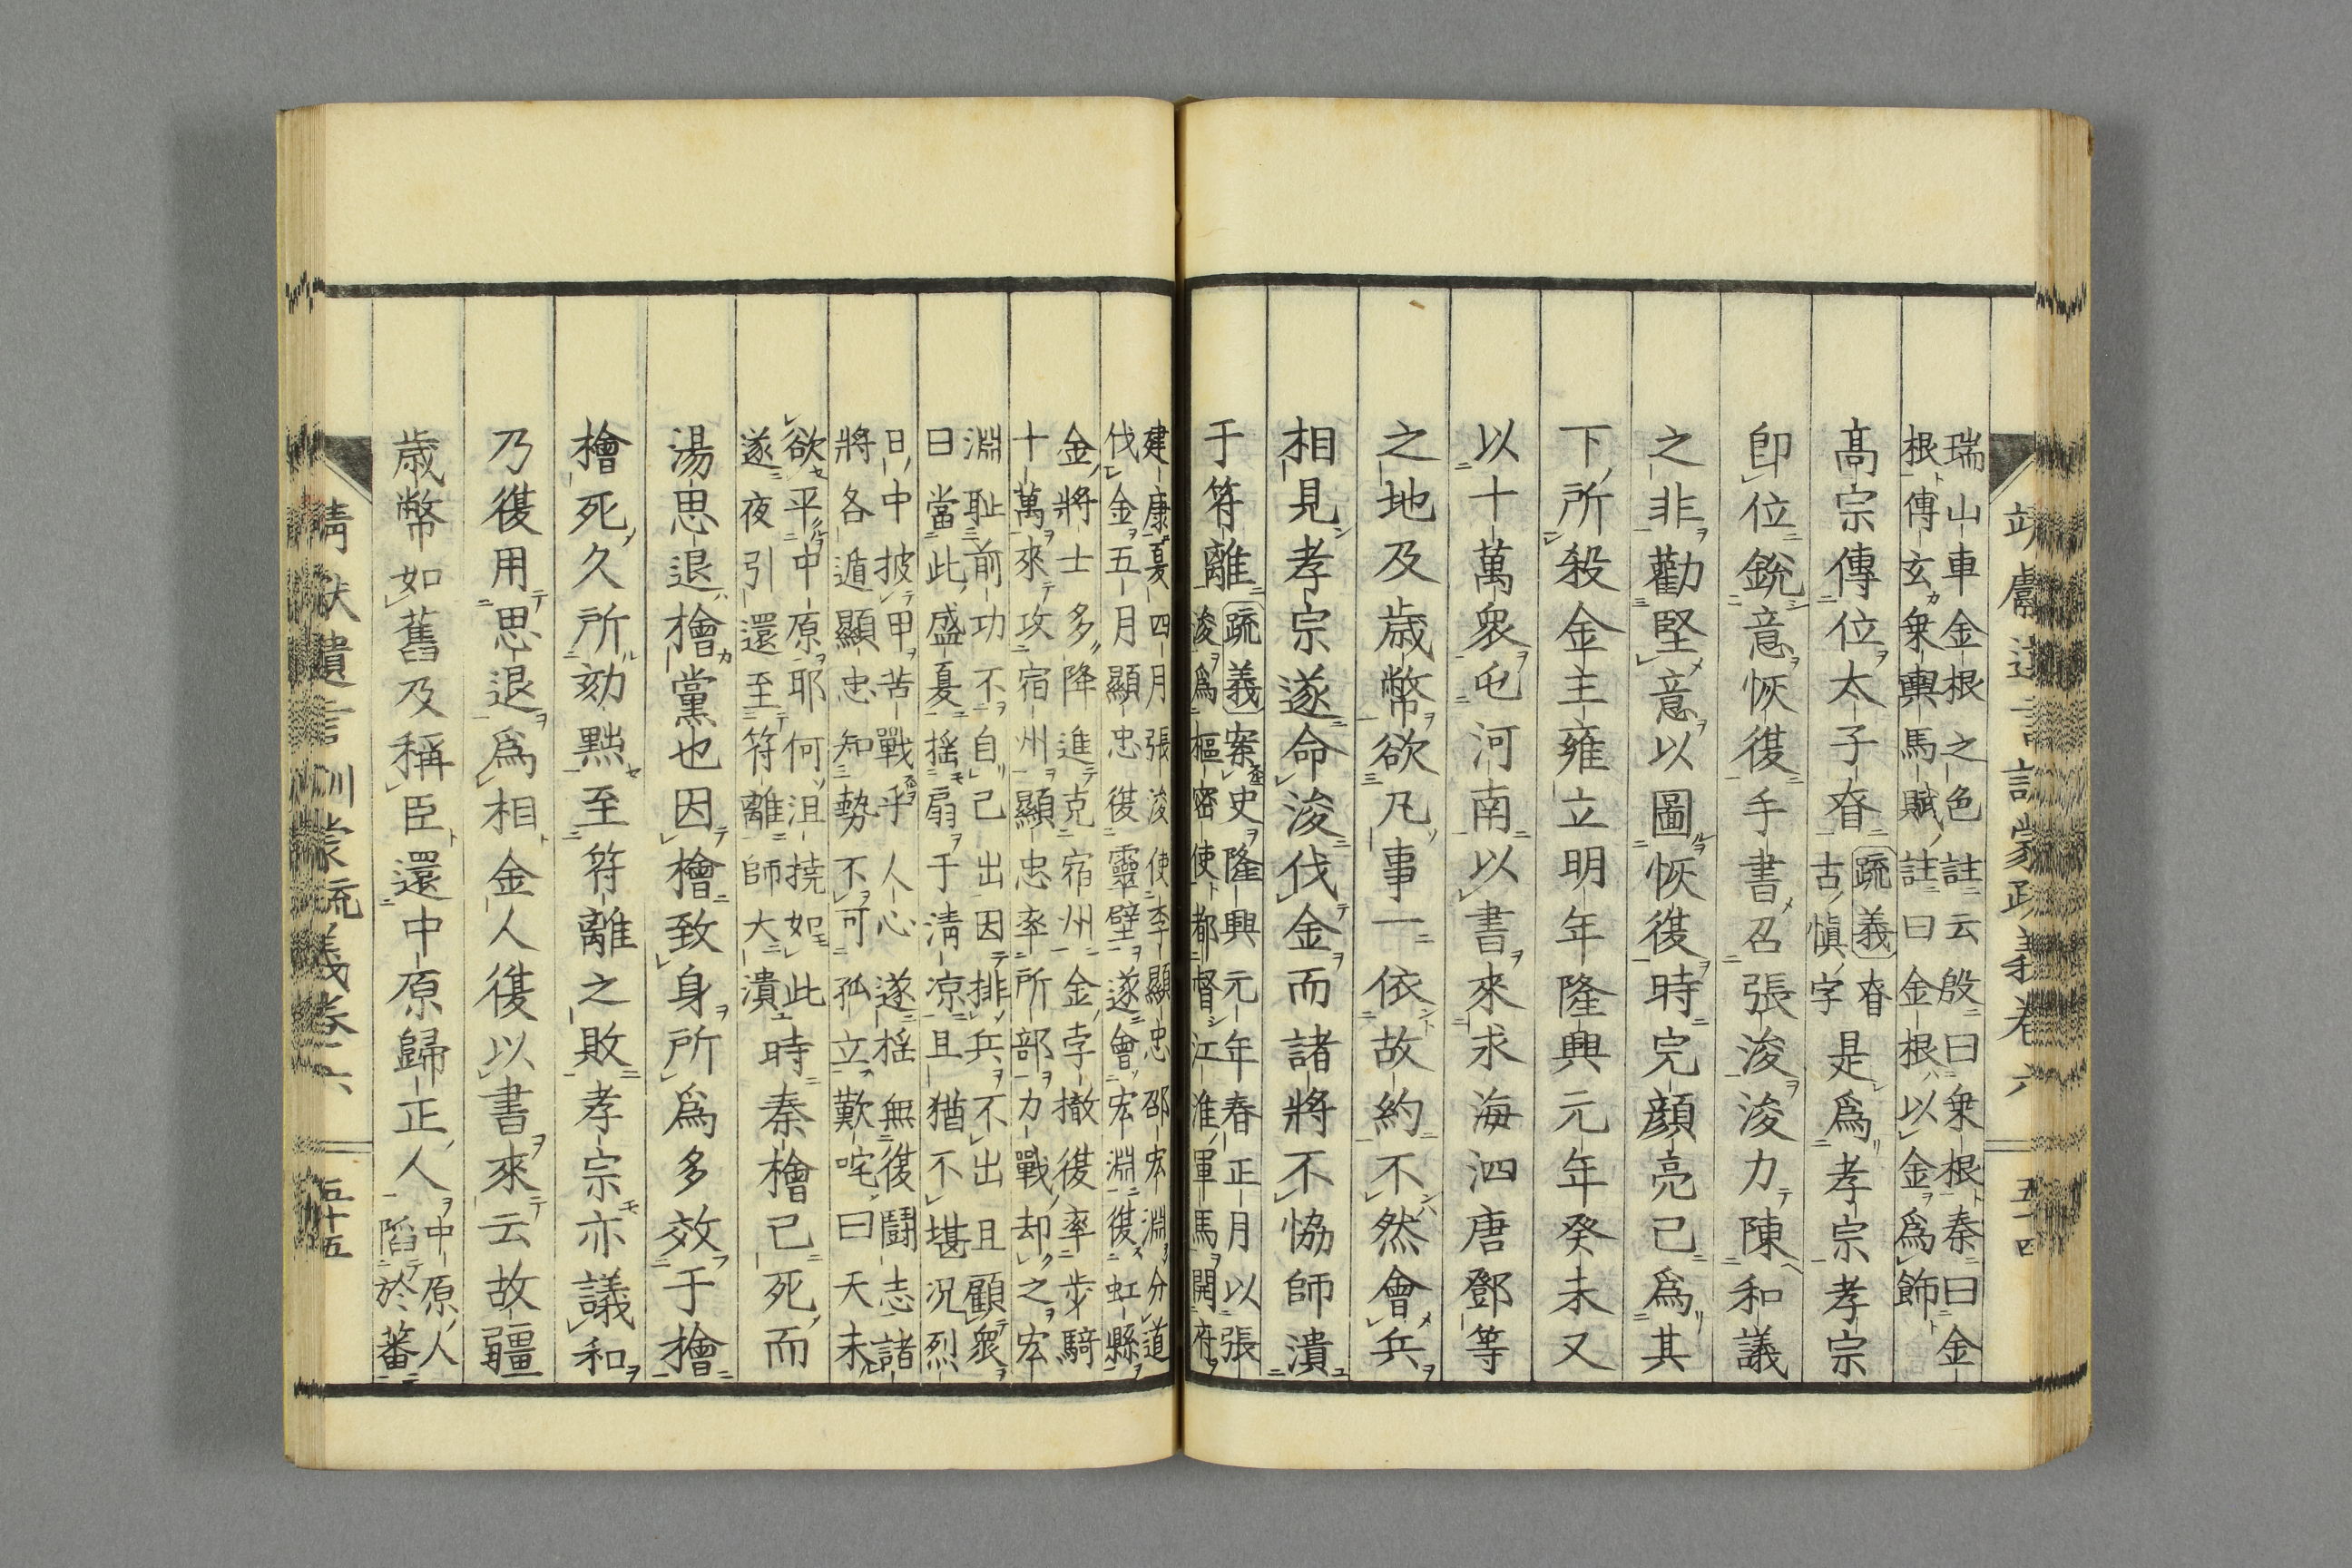 靖獻遺言訓蒙疏義卷六 五十四
瑞山車金根之色註云殷曰乗根秦曰金
根傳玄乗輿馬賦註曰金根以金爲飾
高宗傳位太子昚
疏義昚
古愼字
是爲孝宗孝宗
卽位銳意恢復手書召張浚浚力陳和議
之非勸堅意以圖恢復時完顏亮已爲其
下所殺金主雍立明年隆興元年癸未又
以十萬衆屯河南以書來求海泗唐鄧等
之地及歲幣欲凡事一依故約不然會兵
相見孝宗遂命浚伐金而諸將不恊師潰
于符離
疏義案史隆興元年春正月以張
浚爲樞密使都督江淮軍馬開府
建康夏四月張浚使李顯忠邵宏淵分道
伐金五月顯忠復靈壁遂會宏淵復虹縣
金將士多降進克宿州金孛撒復率步騎
十萬來攻宿州顯忠率所部力戰却之宏
淵恥前功不自己出因排兵不出且顧衆
曰當此盛夏搖扇于淸凉且猶不堪况烈
日中披甲苦戰乎人心遂搖無復鬪志諸
將各遁顯忠知勢不可孤立歎咤曰天未
欲平中原耶何沮撓如此
遂夜引還至符離師大潰
時秦檜已死而
湯思退檜黨也因檜致身所爲多效于檜
檜死久所劾黜至符離之敗孝宗亦議和
乃復用思退爲相金人復以書來云故疆
歲幣如舊及稱臣還中原歸正人
中原人
陷於蕃
靖獻遺言訓蒙疏義卷六 五十五